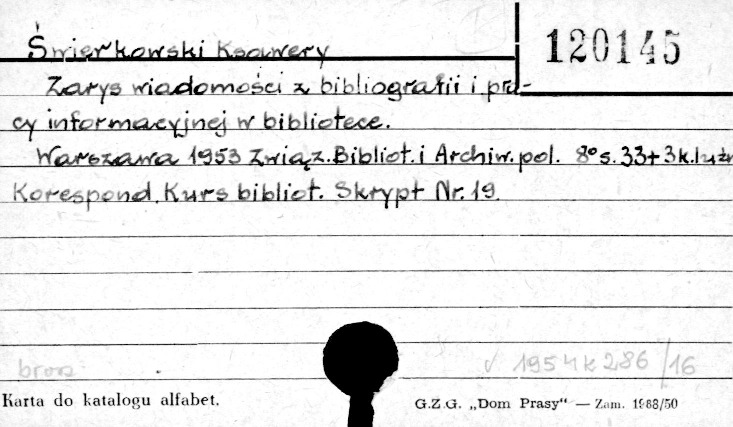 120145
Świerkowski Ksawery
Zarys wiadomości z bibliografii i pra-
cy informacyjnej w bibliotece.
Warszawa 1953 Związ. Bibliot. i Archiw. pol. 8° s. 33+3 k. luźn
Korespond. Kurs bibliot. Skrypt Nr. 19.
brosz
1954 K 286/16
Karta do katalogu alfabet.
G.Z.G. „Dom Prasy" — Zam. 1988/50